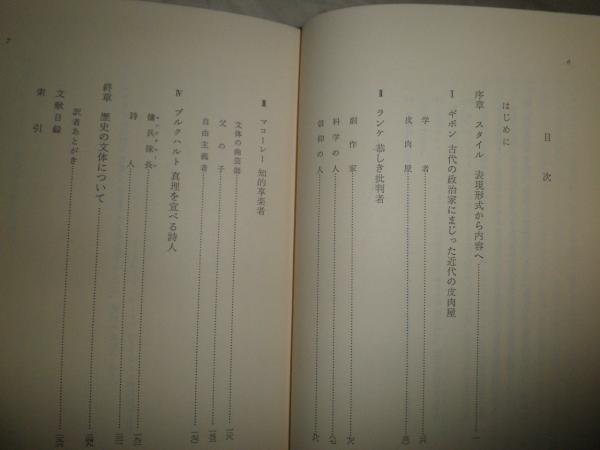 目次
はじめに
序章 スタイル 表現形式から内容へ
Ⅰ ギボン 古代の政治家にまじった近代の皮肉屋
学者
皮肉屋
Ⅱ ランケ 恭しき批判者
劇作家
科学の人
信仰の人
Ⅲ マコーレー 知的享楽者
文体の曲芸師
父の子
自由主義者
Ⅳ ブルクハルト 真理を宣べる詩人
傭兵隊長
詩人
終章 歴史の文体について
訳者あとがき
文献目録
索引